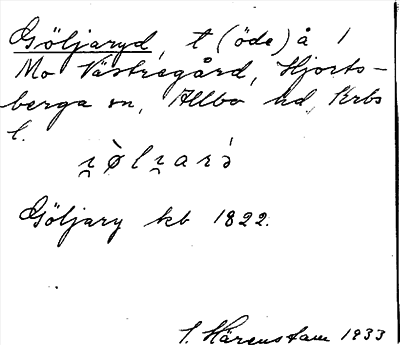 Göljaryd, t (öde) å 1
Mo Västregård, Hjorts-
berga sn, Allbo hd, Krbs
l.
i̯ø̀li̯arə́
Göljary kb 1822.
S. Härenstam 1933